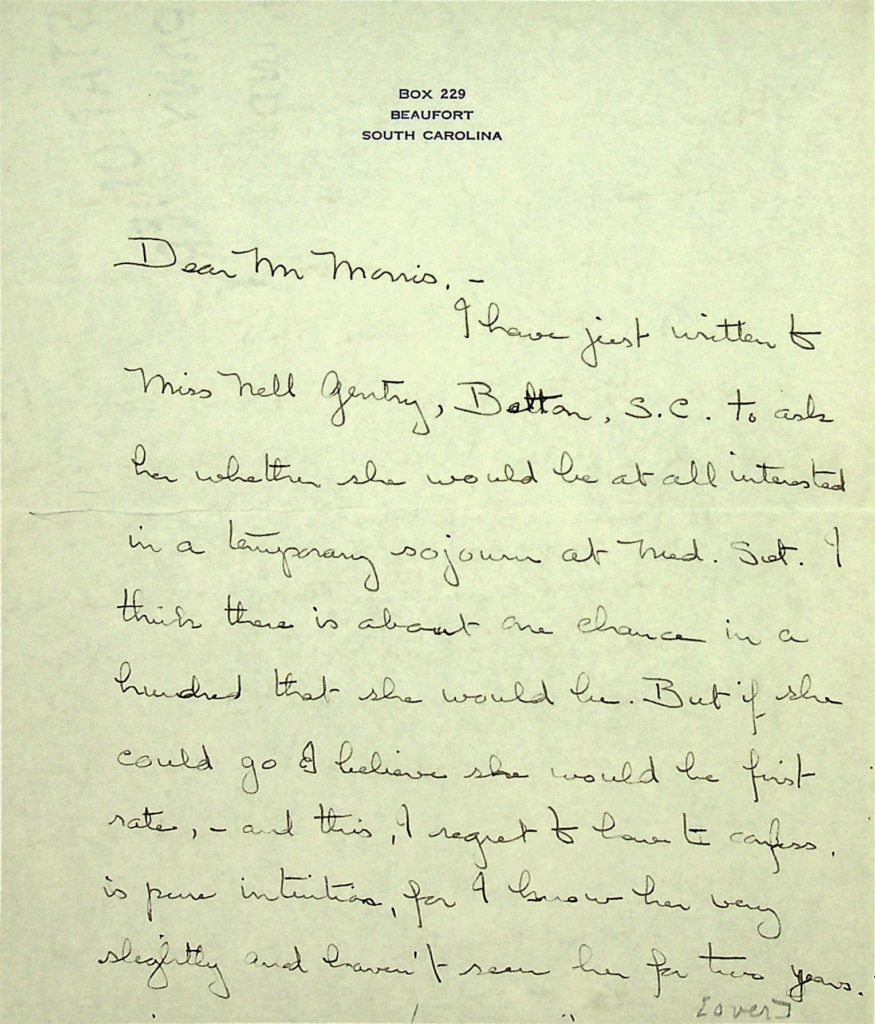 Box 229
BEAUFORT
SOUTH CAROLINA
Dear Mr Morris. –
I have just written to
Miss Nell Gentry, Belton, S.C. to ask
her whether she would be at all interested
in a temporary sojourn at Med. Soct. I
think there is about one chance in a
hundred that she would be. But if she
could go I believe she would be first
rate, – and this, I regret to have to confess.
is pure intuition, for I know her very
slightly and haven't seen her for two years.
[over]